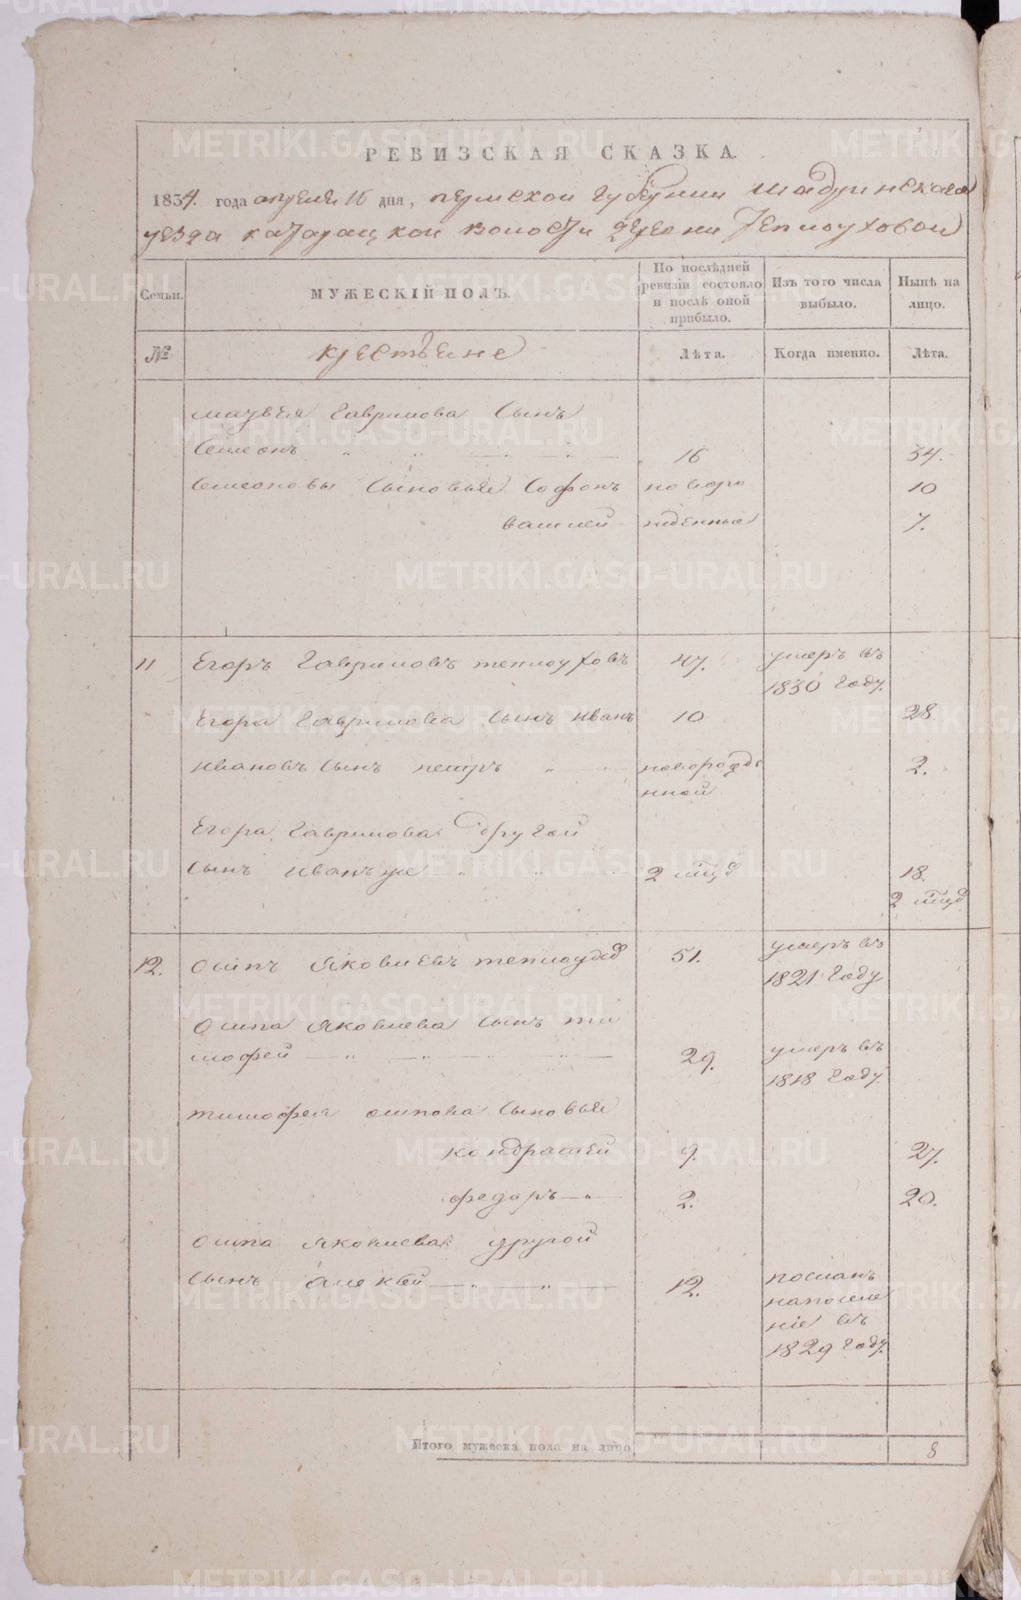 РЕВИЗСКАЯ СКАЗКА.
1834. года апреля 16 дня, пермской губернии шадринскаго
уезда катарацкой волости деревни Теплоуховой
Семьи. МУЖЕСКІЙ ПОЛЪ. По послѣдней ревизіи состояло и послѣ оной прибыло. Изъ того числа выбыло. Нынѣ на лицо.
№ крестьяне Лѣта. Когда именно. Лѣта.
матвея Гаврилова Сынъ
Семенъ 16 34.
Семеновы Сыновья Софонъ новоро 10
василей жденные 7.
11 Егоръ Гавриловъ теплоуховъ 47. умеръ въ
1830 Году.
Егора Гаврилова Сынъ иванъ 10 28.
ивановъ Сынъ петръ новорожде 2.
нной
Егора Гаврилова другой
Сынъ иванъ же 2 мцд 18.
2 мцд
12. осипъ яковлевъ теплоухов 51. умеръ въ
1821 Году
осипа яковлева Сынъ ти
мофей 29. умеръ въ
1818 Году.
тимофея осипова Сыновья
кондратей 9. 27.
федоръ 2. 20.
осипа яковлева другой
Сынъ алексей 12. посланъ
на поселе
ніе въ
1829 Году.
Итого мужеска пола на лицо 8
METRIKI.GASO-URAL.RU